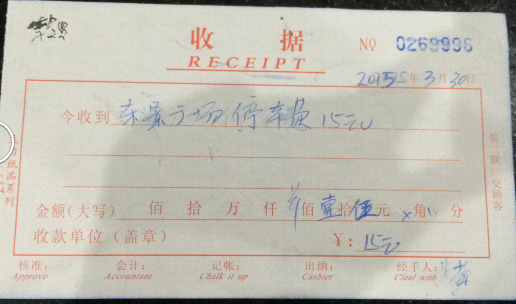 收据 NO 0269996
RECEIPT
2015年3月30日
今收到 东景广场停车费15元
金额(大写) 佰 拾 万 仟 佰 壹拾伍元 × 角 分
收款单位(盖章) ¥: 15元
核准: 会计: 记帐: 出纳: 经手人:
Approve Accountant Chalk it up Cashier Deal with
第二联 交顾客
纸品系列